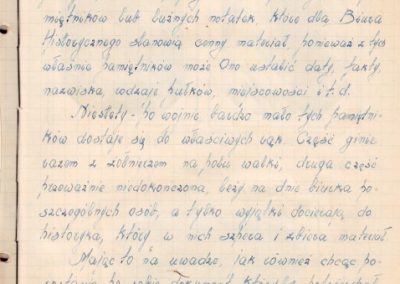 miętników lub luźnych notatek, które dla Biura
Historycznego stanowią cenny materiał, ponieważ z tych
właśnie pamiętników może Ono ustalić daty, fakty,
nazwiska, rodzaje pułków, miejscowości i t.d.
Niestety - po wojnie bardzo mało tych pamiętni-
ków dostaje się do właściwych rąk. Część ginie
razem z żołnierzem na polu walki, druga część
przeważnie niedokończona, leży na dnie biurka po-
szczególnych osób, a tylko wyjątki docierają do
historyka, który w nich szpera i zbiera materiał.
Mając to na uwadze, jak również chcąc po-
zostawić po sobie dokument, któryby